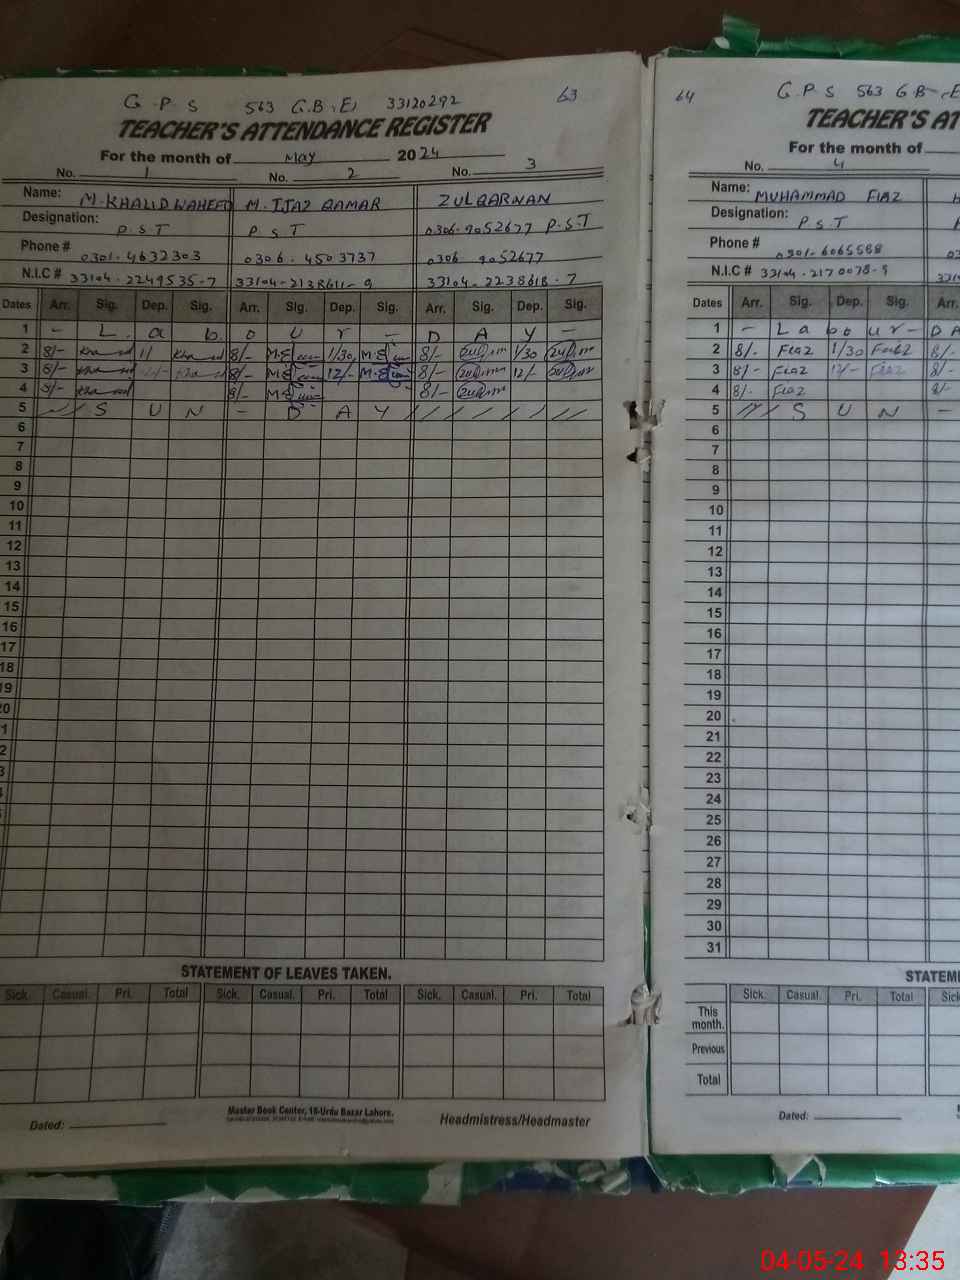 G.P.S 563 G.B.(E) 33120292 63
TEACHER'S ATTENDANCE REGISTER
For the month of May 2024
No. 1 No. 2 No. 3
Name: M.KHALID WAHEED M.IJAZ QAMAR ZULQARNAN
Designation: P.S.T P S T 0306.9052677 P.S.T
Phone # 0301.4632303 0306.4503737 0306 9052677
N.I.C # 33104.2249535-7 33104-2138611-9 33104.2238618.7
Dates Arr. Sig. Dep. Sig. Arr. Sig. Dep. Sig. Arr. Sig. Dep. Sig.
1 - L a b o u r - D A Y -
2 8/- 8/- 1/30 8/- 1/30
3 8/- 8/- 12/- 8/- 12/-
4 8/- 8/- 8/-
5 S U N - D A Y
6
7
8
9
10
11
12
13
14
15
16
17
18
19
20
STATEMENT OF LEAVES TAKEN.
Sick. Casual. Pri. Total Sick. Casual. Pri. Total Sick. Casual. Pri. Total
Master Book Center, 18-Urdu Bazar Lahore.
Dated: Headmistress/Headmaster
64 G.P.S 563 G B-(E
TEACHER'S AT
For the month of
No. 4
Name: MUHAMMAD FIAZ
Designation: P.S.T
Phone # 0301-6065588
N.I.C # 33104-2170078-9
Dates Arr. Sig. Dep. Sig. Arr.
1 - L a bo u r - D A
2 8/- Fiaz 1/30 Fiaz 8/-
3 8/- Fiaz 12/- Fiaz 8/-
4 8/- Fiaz 8/-
5 S U N -
6
7
8
9
10
11
12
13
14
15
16
17
18
19
20
21
22
23
24
25
26
27
28
29
30
31
STATEM
Sick. Casual. Pri. Total Sick
This month.
Previous
Total
Dated:
04-05-24 13:35